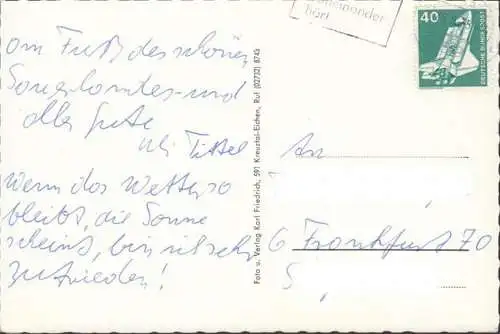 Am Fuß des schönen
Sauerlandes und
alles Gute
Uli Tittel
Wenn das Wetter so
bleibt, die Sonne
scheint, bin ich sehr
zufrieden!
Foto u. Verlag Karl Friedrich, 591 Kreuztal-Eichen, Ruf (02732) 8745
40
DEUTSCHE BUNDESPOST
An
6 Frankfurt 70